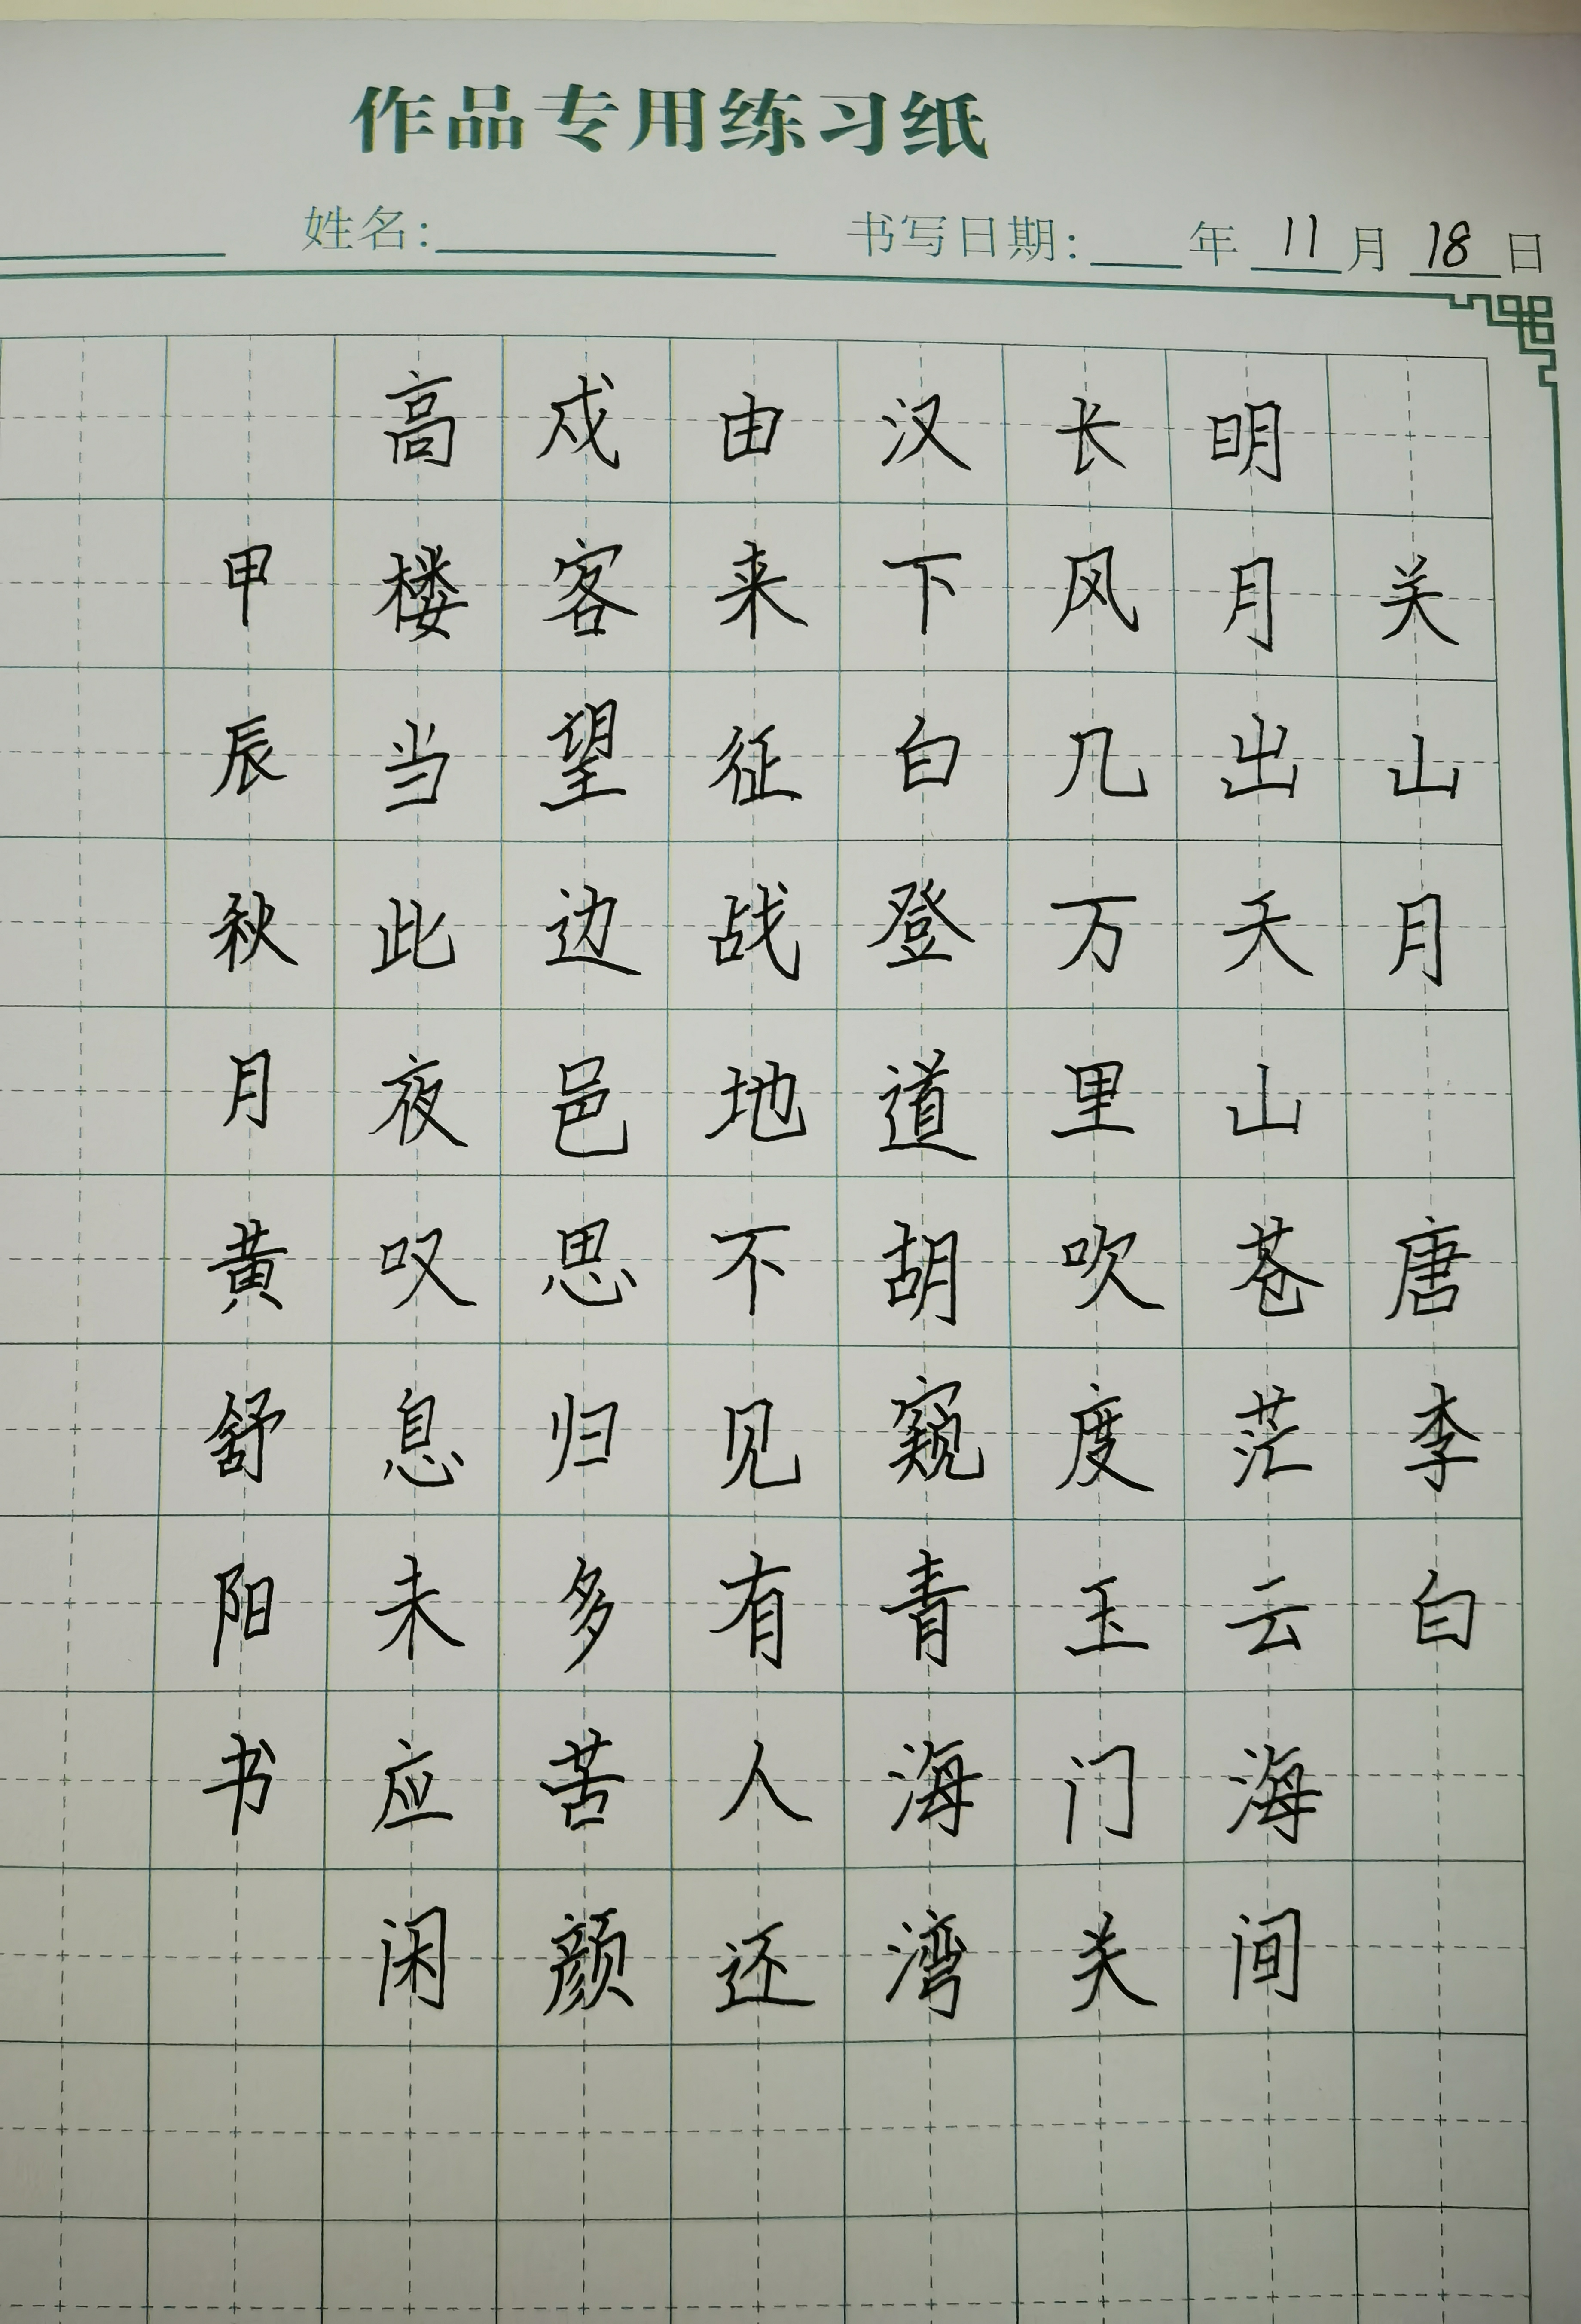 作品专用练习纸
姓名： 书写日期： 年 11 月 18 日
关山月 唐 李白
明月出天山苍茫云海间
长风几万里吹度玉门关
汉下白登道胡窥青海湾
由来征战地不见有人还
戍客望边邑思归多苦颜
高楼当此夜叹息未应闲
甲辰秋月黄舒阳书